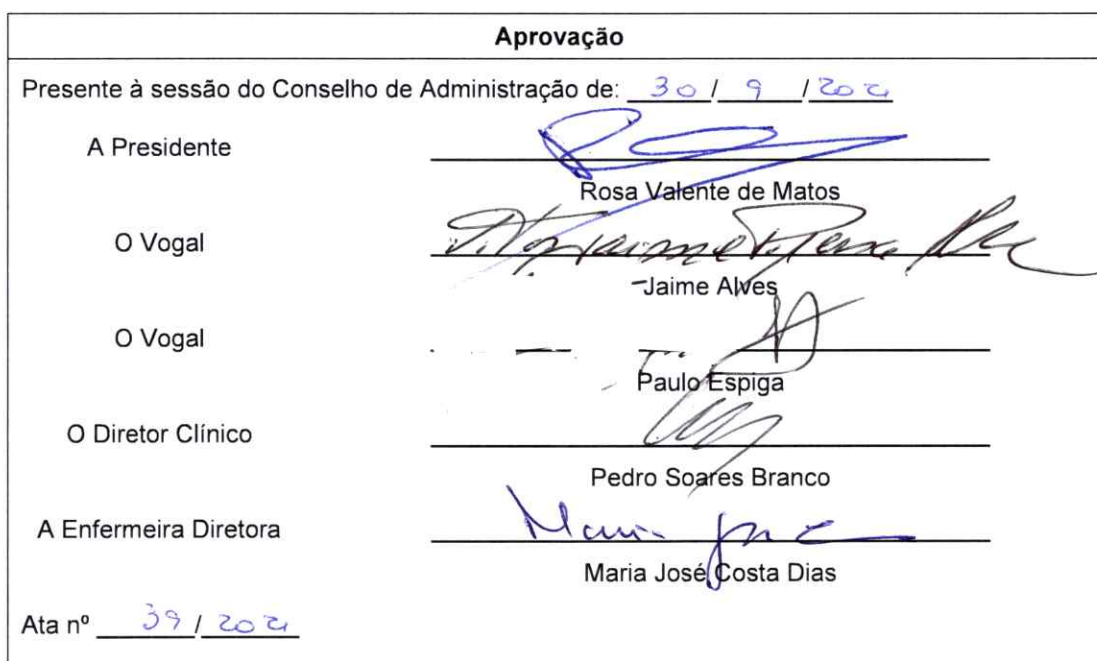 Aprovação
Presente à sessão do Conselho de Administração de: 30 / 9 / 2021
A Presidente
Rosa Valente de Matos
O Vogal
Jaime Alves
O Vogal
Paulo Espiga
O Diretor Clínico
Pedro Soares Branco
A Enfermeira Diretora
Maria José
Maria José Costa Dias
Ata nº 39 / 2021